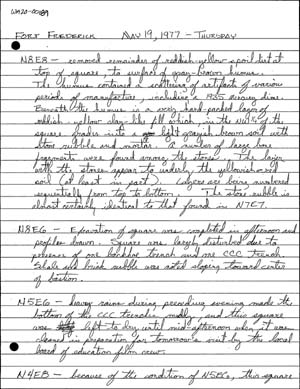 WA20-00189
FORT FREDERICK MAY 19, 1977 - THURSDAY
N8E8 - removed remainder of reddish-yellow spoil dirt at
top of square, to surface of gray-brown humus.
The humus contained a scattering of artifacts of various
periods of manufacture, including a 1935 mercury dime.
Beneath the humus is a very hard-packed layer of
reddish yellow clay-like fill which, in the N1/2 of the
square grades into a light grayish brown soil with
stone rubble and mortar. A number of large bone
fragments were found among the stones. The layer
with the stones appears to underly the yellowish-red
soil (at least in part). Layers are being numbered
sequentially from top to bottom. The stone rubble is
almost certainly identical to that found in N7E7.
N8E6 - Excavation of square was completed in afternoon and
profiles drawn. Square was largely disturbed due to
presence of one bastion trench and one CCC trench.
Shale and brick rubble was noted sloping toward center
of bastion.
N5E6 - heavy rains during preceding evening made the
bottom of the CCC trenches muddy, and this square
was left to dry until mid-afternoon when it was
cleaned in preparation for tomorrow's visit by the local
board of education film crew.
N4E8 - because of the condition of N5E6, this square